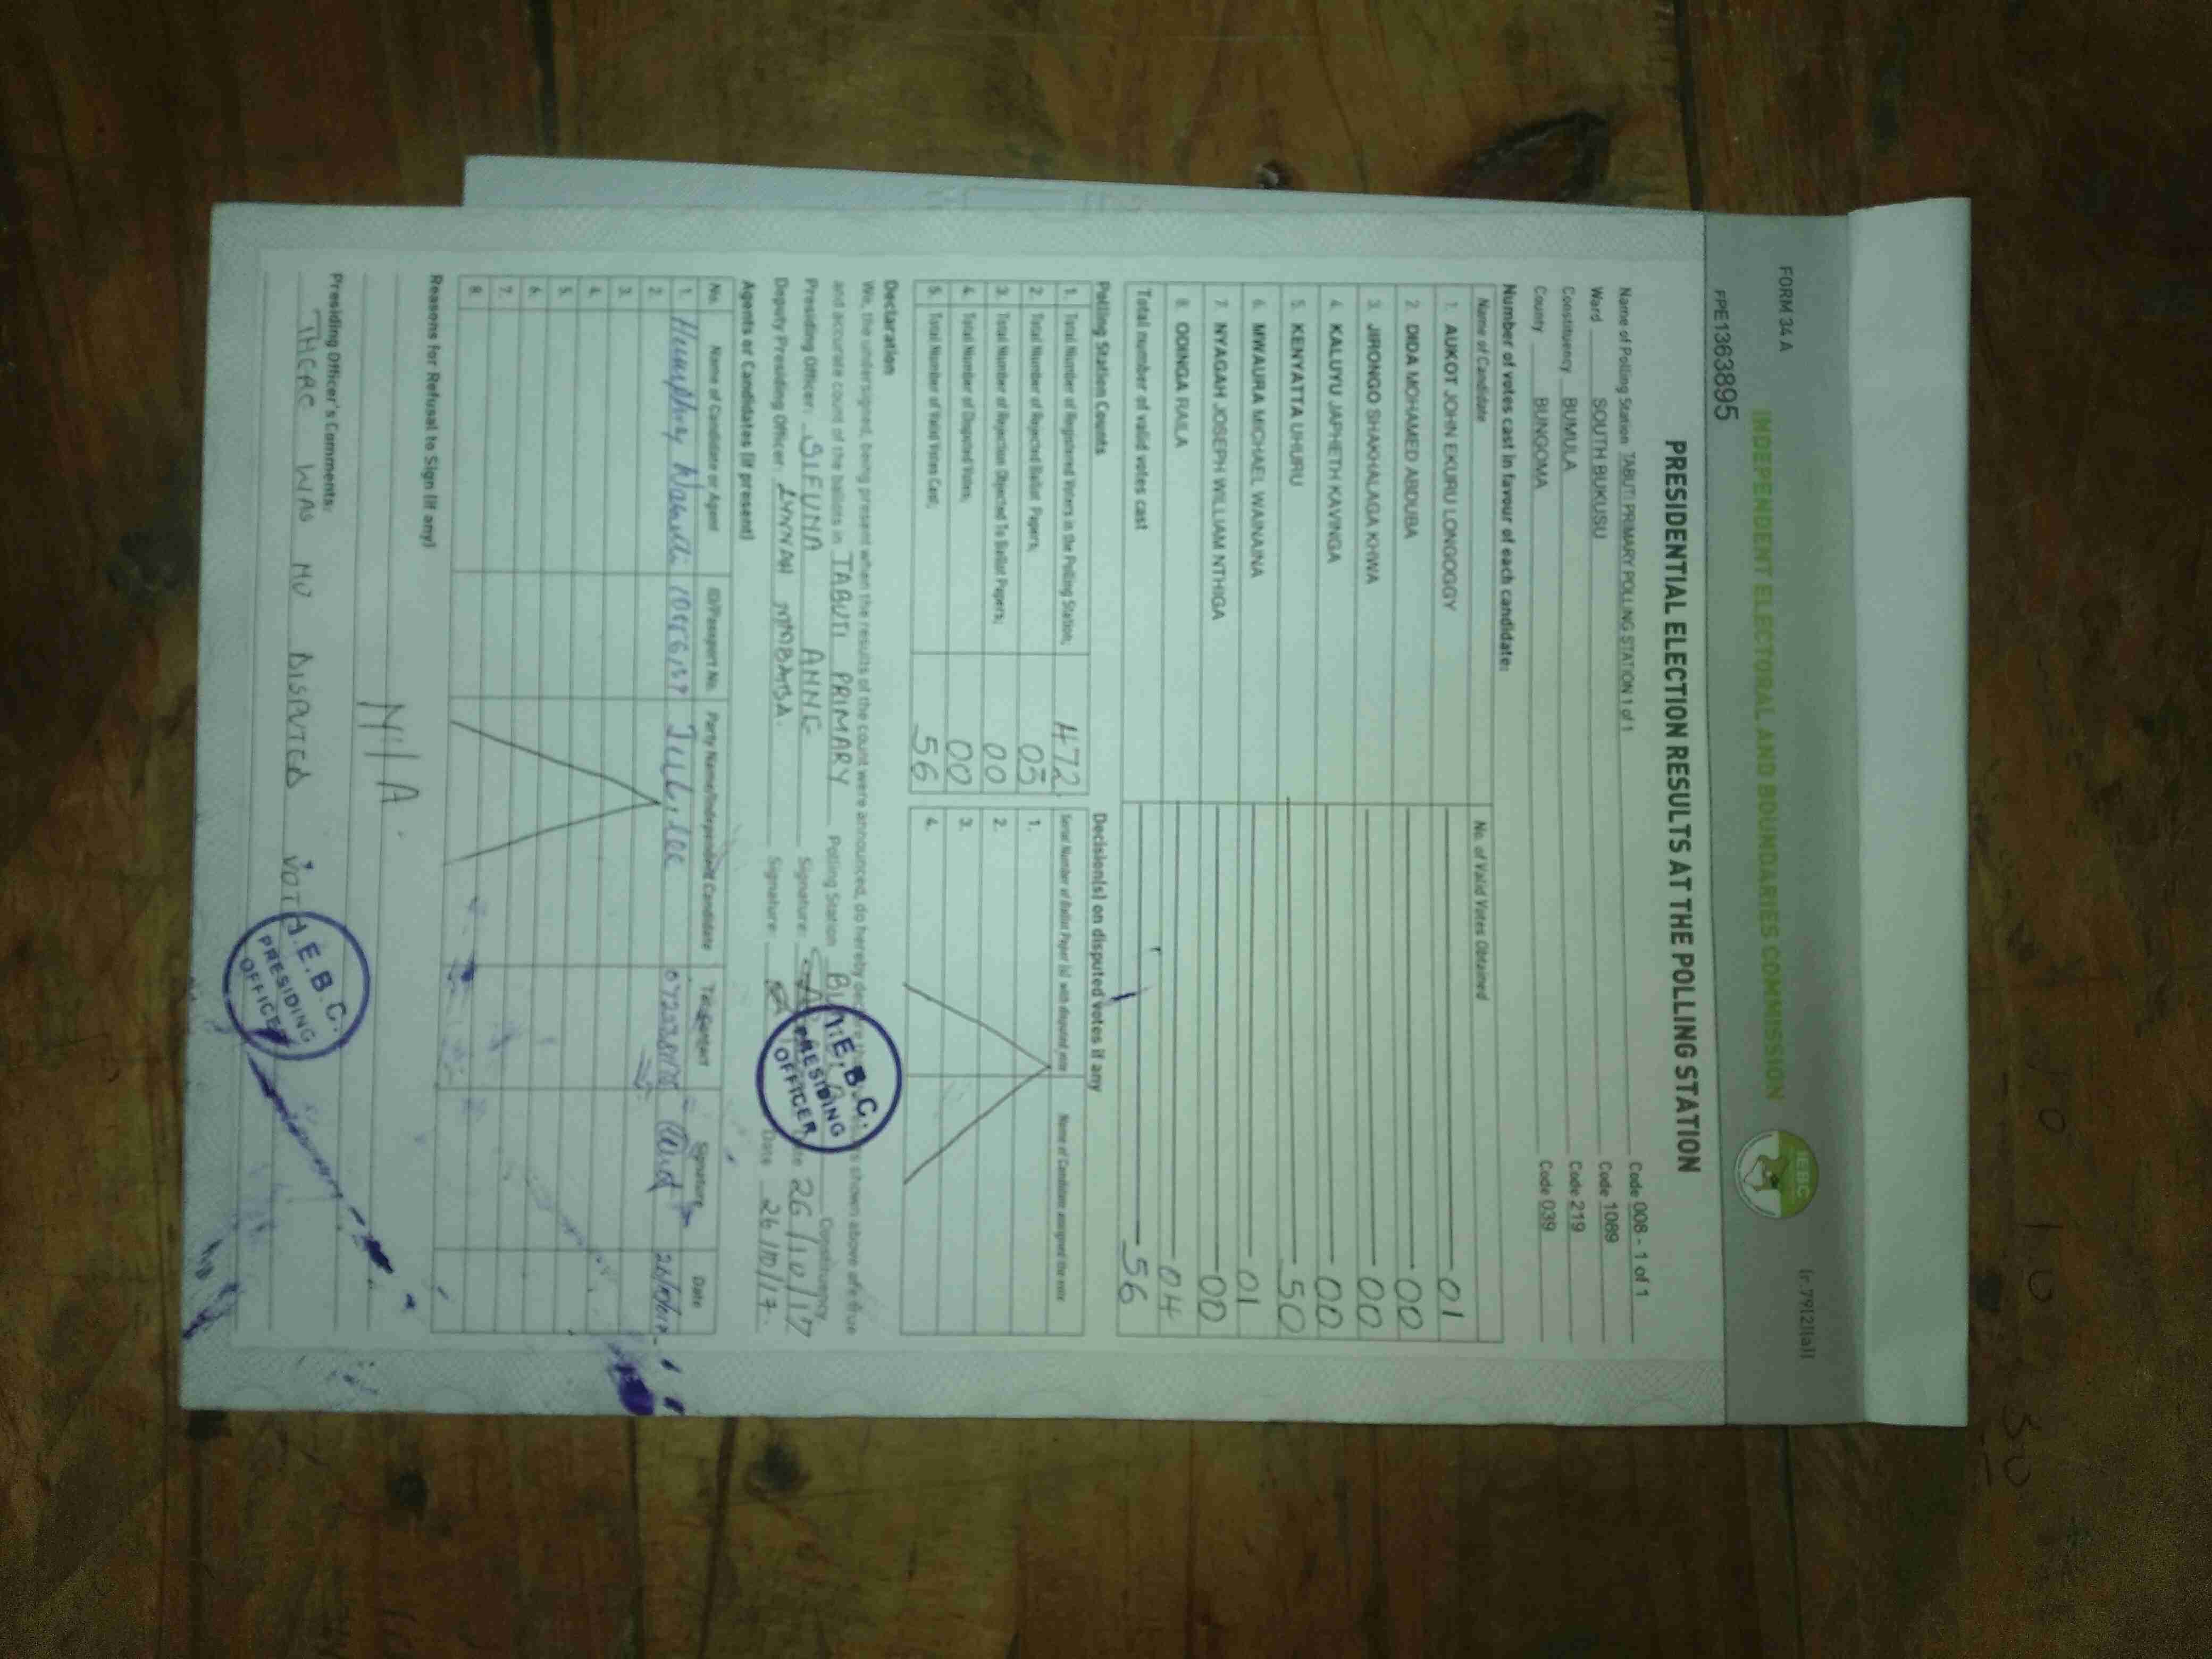 FORM 34 A
(r.79(2)(a))
INDEPENDENT ELECTORAL AND BOUNDARIES COMMISSION
IEBC
FPE1363895
PRESIDENTIAL ELECTION RESULTS AT THE POLLING STATION
Name of Polling Station TABUTI PRIMARY POLLING STATION 1 of 1 Code 008 - 1 of 1
Ward SOUTH BUKUSU Code 1089
Constituency BUMULA Code 219
County BUNGOMA Code 039
Number of votes cast in favour of each candidate:
Name of Candidate No. of Valid Votes Obtained
1. AUKOT JOHN EKURU LONGOGGY 01
2. DIDA MOHAMED ABDUBA 00
3. JIRONGO SHAKHALAGA KHWA 00
4. KALUYU JAPHETH KAVINGA 00
5. KENYATTA UHURU 50
6. MWAURA MICHAEL WAINAINA 01
7. NYAGAH JOSEPH WILLIAM NTHIGA 00
8. ODINGA RAILA 04
Total number of valid votes cast 56
Polling Station Counts
1. Total Number of Registered Voters in the Polling Station; 472
2. Total Number of Rejected Ballot Papers; 03
3. Total Number of Rejection Objected To Ballot Papers; 00
4. Total Number of Disputed Votes; 00
5. Total Number of Valid Votes Cast; 56
Decision(s) on disputed votes if any
Serial Number of Ballot Paper (s) with disputed vote Name of Candidate assigned the vote
1.
2.
3.
4.
Declaration
We, the undersigned, being present when the results of the count were announced, do hereby declare shown above are true
and accurate count of the ballots in TABUTI PRIMARY Polling Station Constituency
Presiding Officer: SIFUNA ANNE Signature: 26/10/17
Deputy Presiding Officer: LYNNAH Signature: Date 26/10/17.
I.E.B.C.
PRESIDING
OFFICER
Agents or Candidates (if present)
No. Name of Candidate or Agent ID/Passport No. Party Name/Independent Candidate Tel. contact Signature Date
1. Humphrey Jubilee
2.
3.
4.
5.
6.
7.
8.
Reasons for Refusal to Sign (if any)
N/A.
Presiding Officer's Comments:
THERE WAS NO DISPUTED
I.E.B.C.
PRESIDING
OFFICER